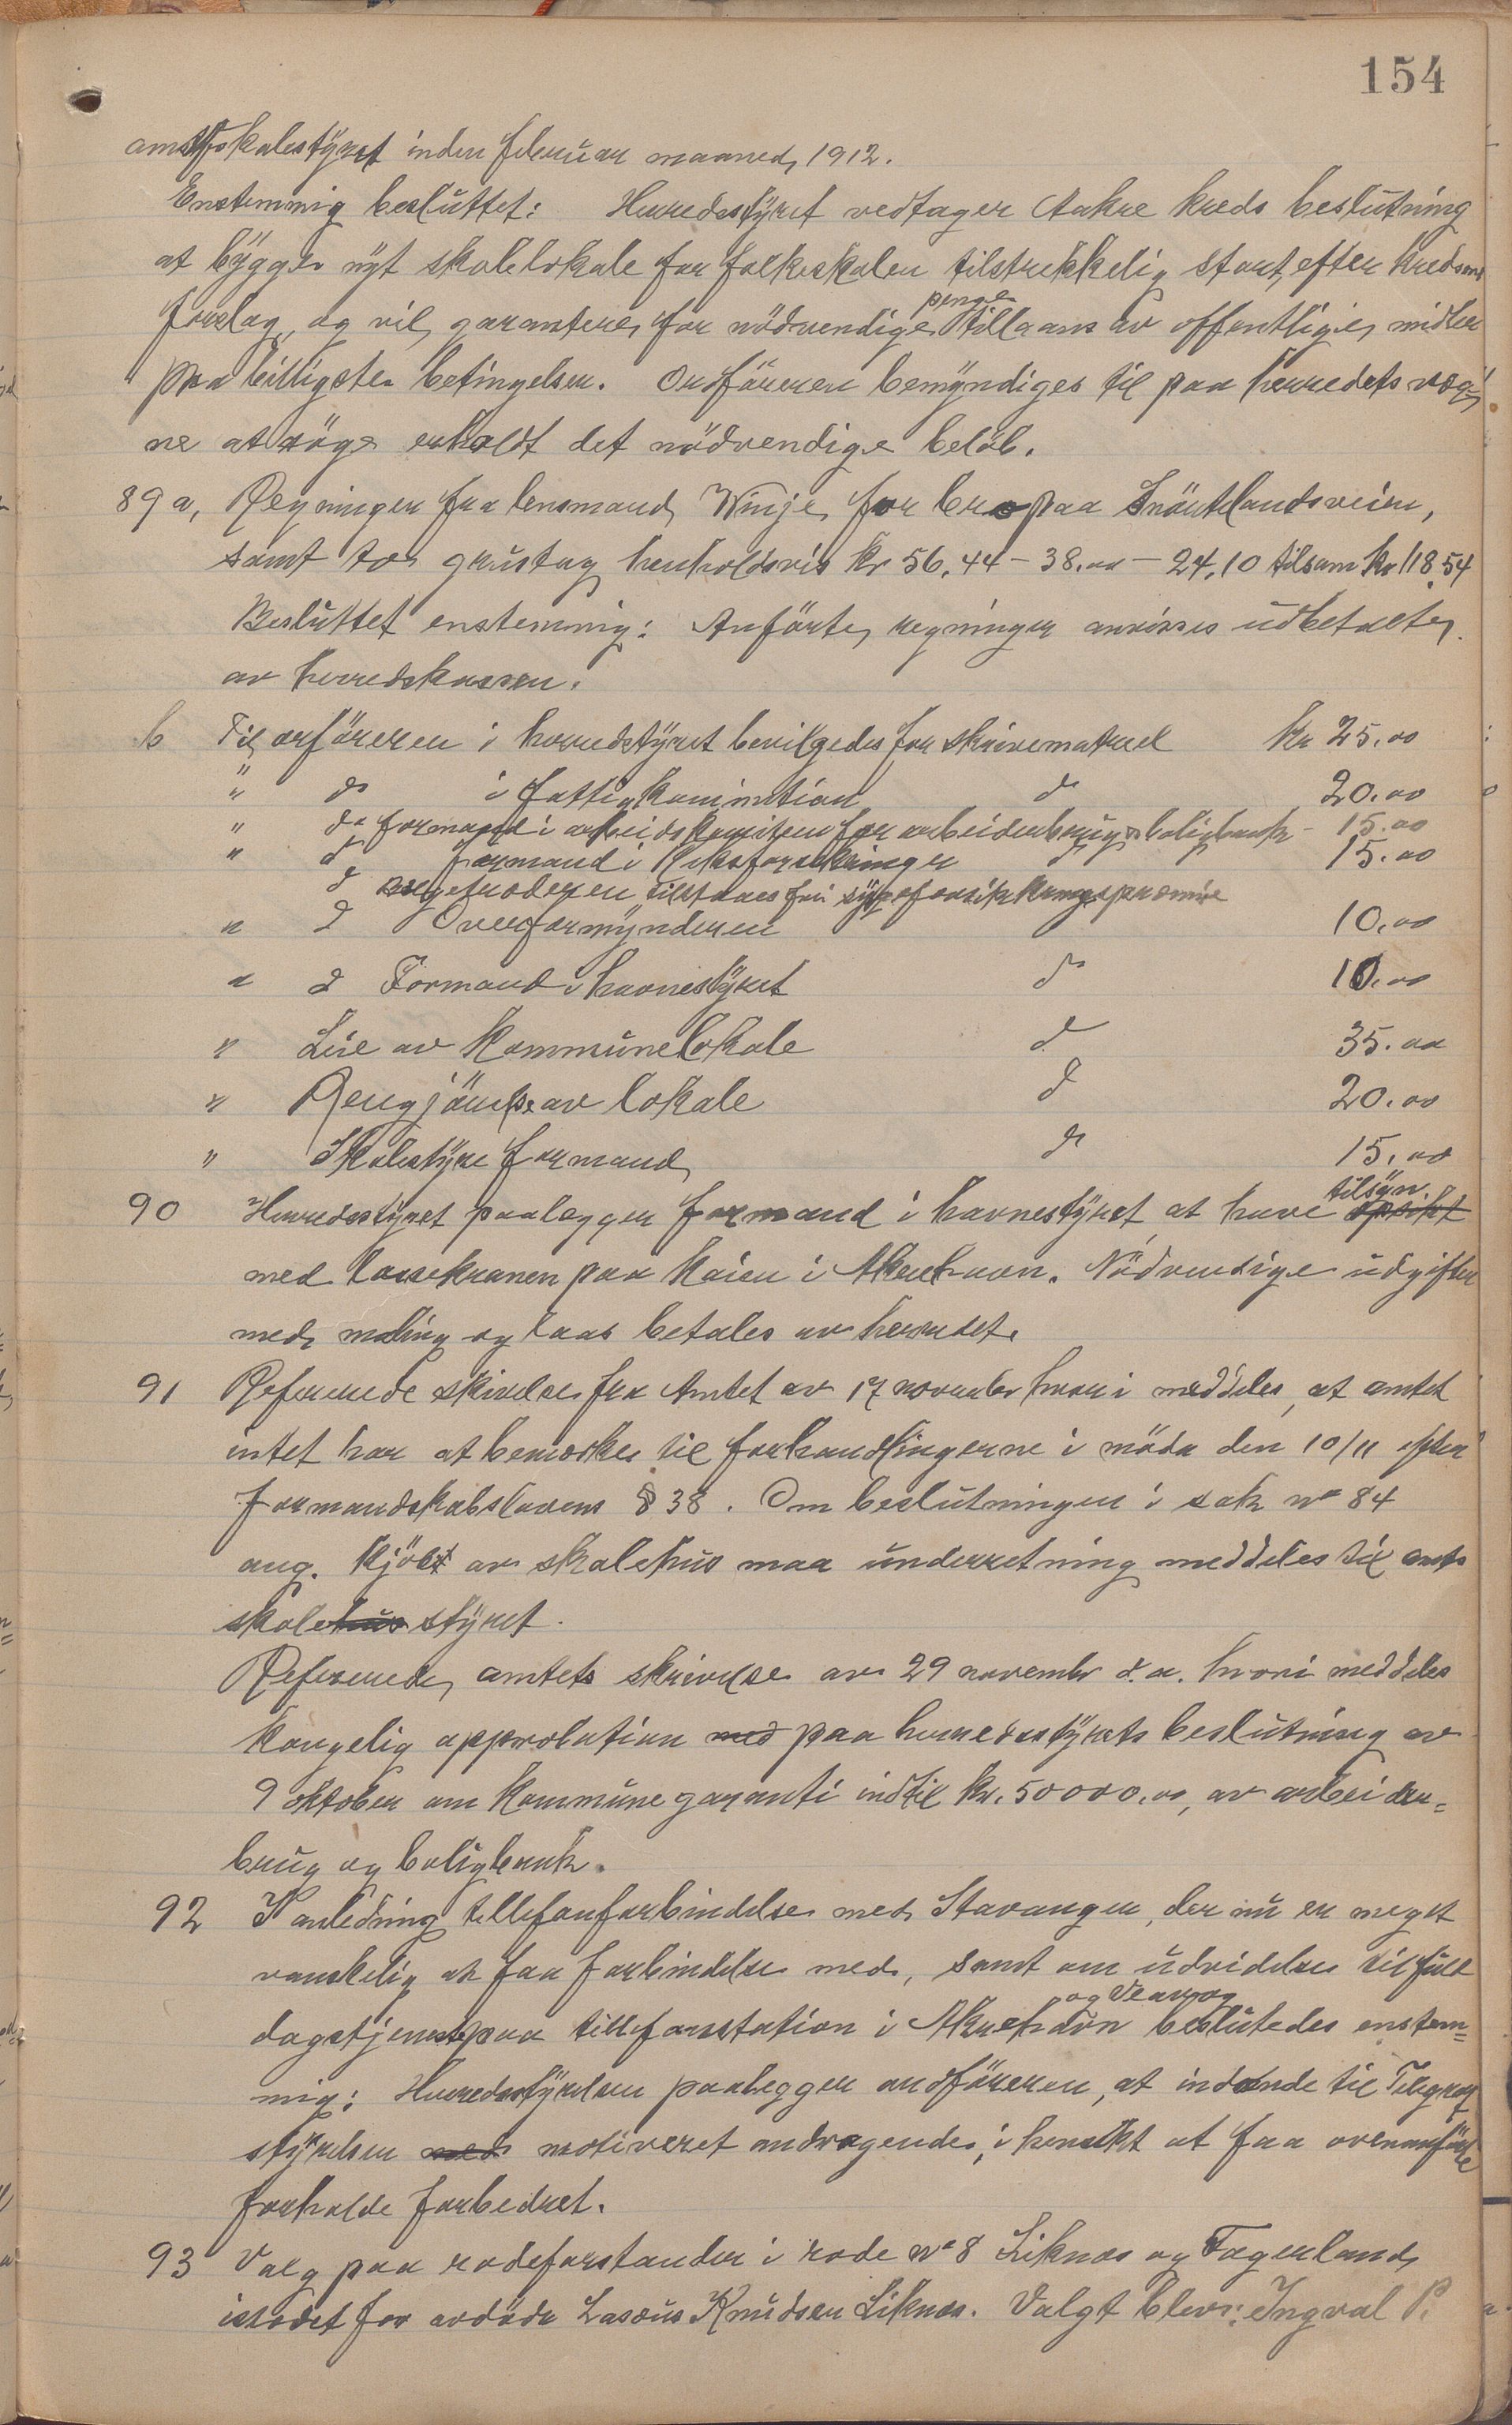 154
amtsskolestyret inden februar maaned 1912.
Enstemmig besluttet: Herredsstyret vedtager Aakre kreds beslutning
at bygge nyt skolelokale for folkeskolen tilstrekkelig stort, efter kredsens
forslag, og vil garantere for nødvendige penge tillaans av offentlige midler
paa billigste betingelser. Ordføreren bemyndiges til paa herredets veg-
ne at søge erholdt det nødvendige beløb.
89 a, Regninger fra lensmand Winje for bro paa Snörtlandsveien,
samt to grustag henholdsvis Kr 56,44 – 38.00 – 24,10 tilsam kr 118.54
Besluttet enstemmig: Anførte regninger anvises udbetalte
av herredskassen.
b Til orføreren i herredstyret bevilgedes for skrivematriel kr 25.00
" do i fattigkommision do 20.00
" do formand i arbeidskomiteen for arbeiderbrug & boligbank - 15.00
" d formand i Riksforsekringen d 15.00
d tilstaaes fri sykeforsikkringspræmie
" d Overformynderen 10.00
" d Formand i havnestyret do 10.00
" Leie av Kommunelokale d 35.00
" Rengjørelse av lokale d 20.00
" Skolestyre formand do 15.00
90 Herredsstyret paalegger formand i havnestyret, at have opsikt tilsyn
med lossekranen paa Kaien i Akrehavn. Nødvendige udgifter
med maling og laas betales av herredet.
91 Refererede skrivelse fra Amtet av 17 november hvori meddeles, at amtet
intet har at bemerke til forhandlingerne i møde den 10/11 efter
formandskabslovens § 38. Om beslutningen i sak No 84
ang. kjøb av skolehus maa underretning meddeles til amts
skolehus styret.
Refererede amtets skrivelse av 29 novembr d.a. hvori meddeles
kongelig approbation med paa herredsstyrets beslutning av
9 oktober om Kommune garanti indtil kr. 50000.00, av arbeider=
brug og boligbank.
92 I anledning tellefonforbindelse med Stavanger, der nu er meget
vanskelig at faa forbindelse med, samt om udvidelse til fuld
dagstjeneste paa tellefonstation i Akrehavn og Veavaag beslutedes enstem=
mig: Herredsstyrelsen paalegger ordføreren, at indsende til Telegraf
styrelsen med motiveret andragende, i hensikt at faa ovenanførte
forholde forbedret.
93 Valg paa rodeforstander i rode No 8 Liknes og Fagerland
istedet for avdøde Lasæus Knudsen Liknes. Valgt blev: Ingval P.